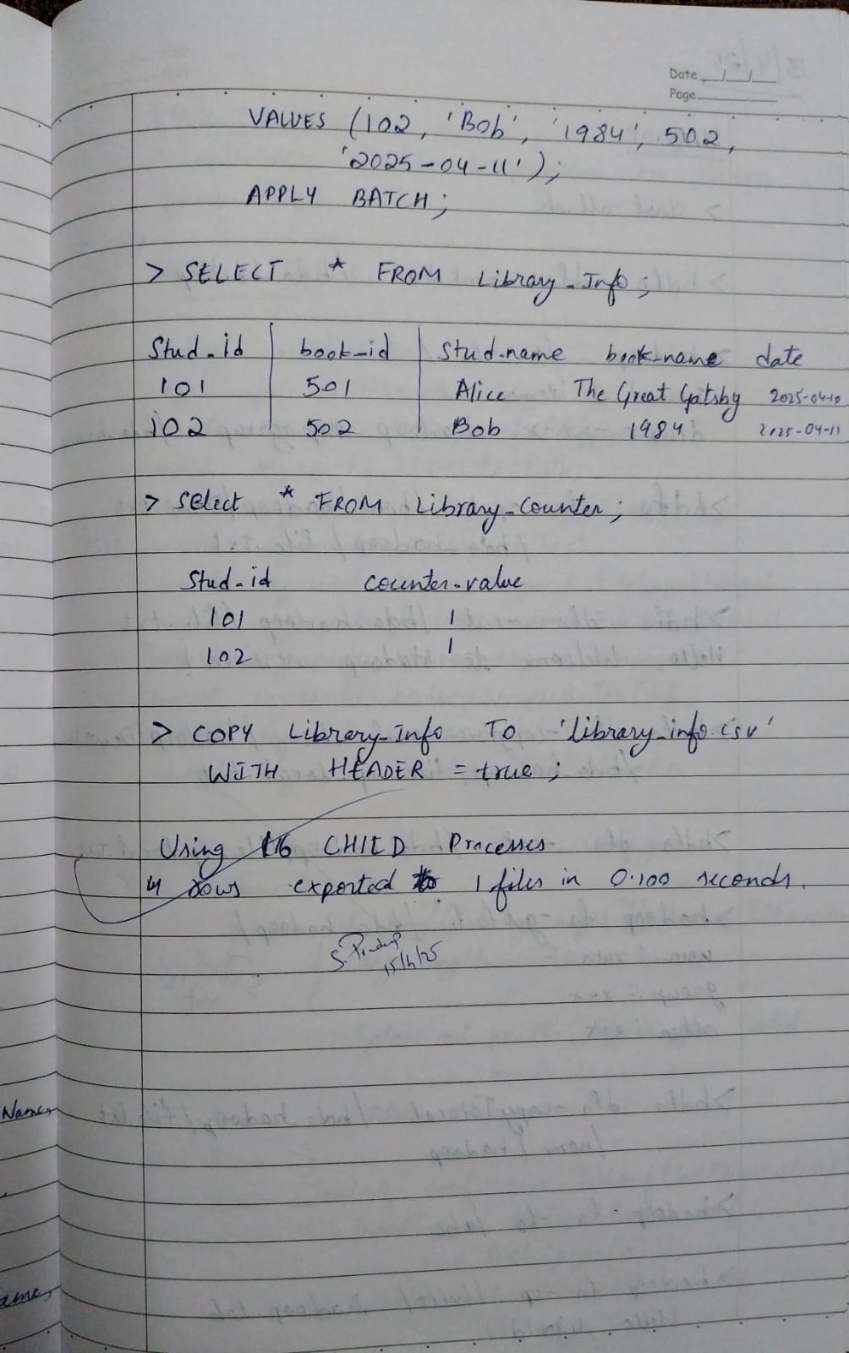 Date / /
Page
VALUES (102, 'Bob', '1984', 502,
'2025-04-11');
APPLY BATCH;
> SELECT * FROM Library_Info;
Stud_id book_id Stud_name book_name date
101 501 Alice The Great Gatsby 2025-04-10
102 502 Bob 1984 2025-04-11
> Select * FROM Library_Counter;
Stud_id counter_value
101 1
102 1
> COPY Library_Info TO 'library_info.csv'
WITH HEADER = true;
Using 16 CHILD Processes.
4 rows exported to 1 files in 0.100 seconds.
15/4/25
Name
ame